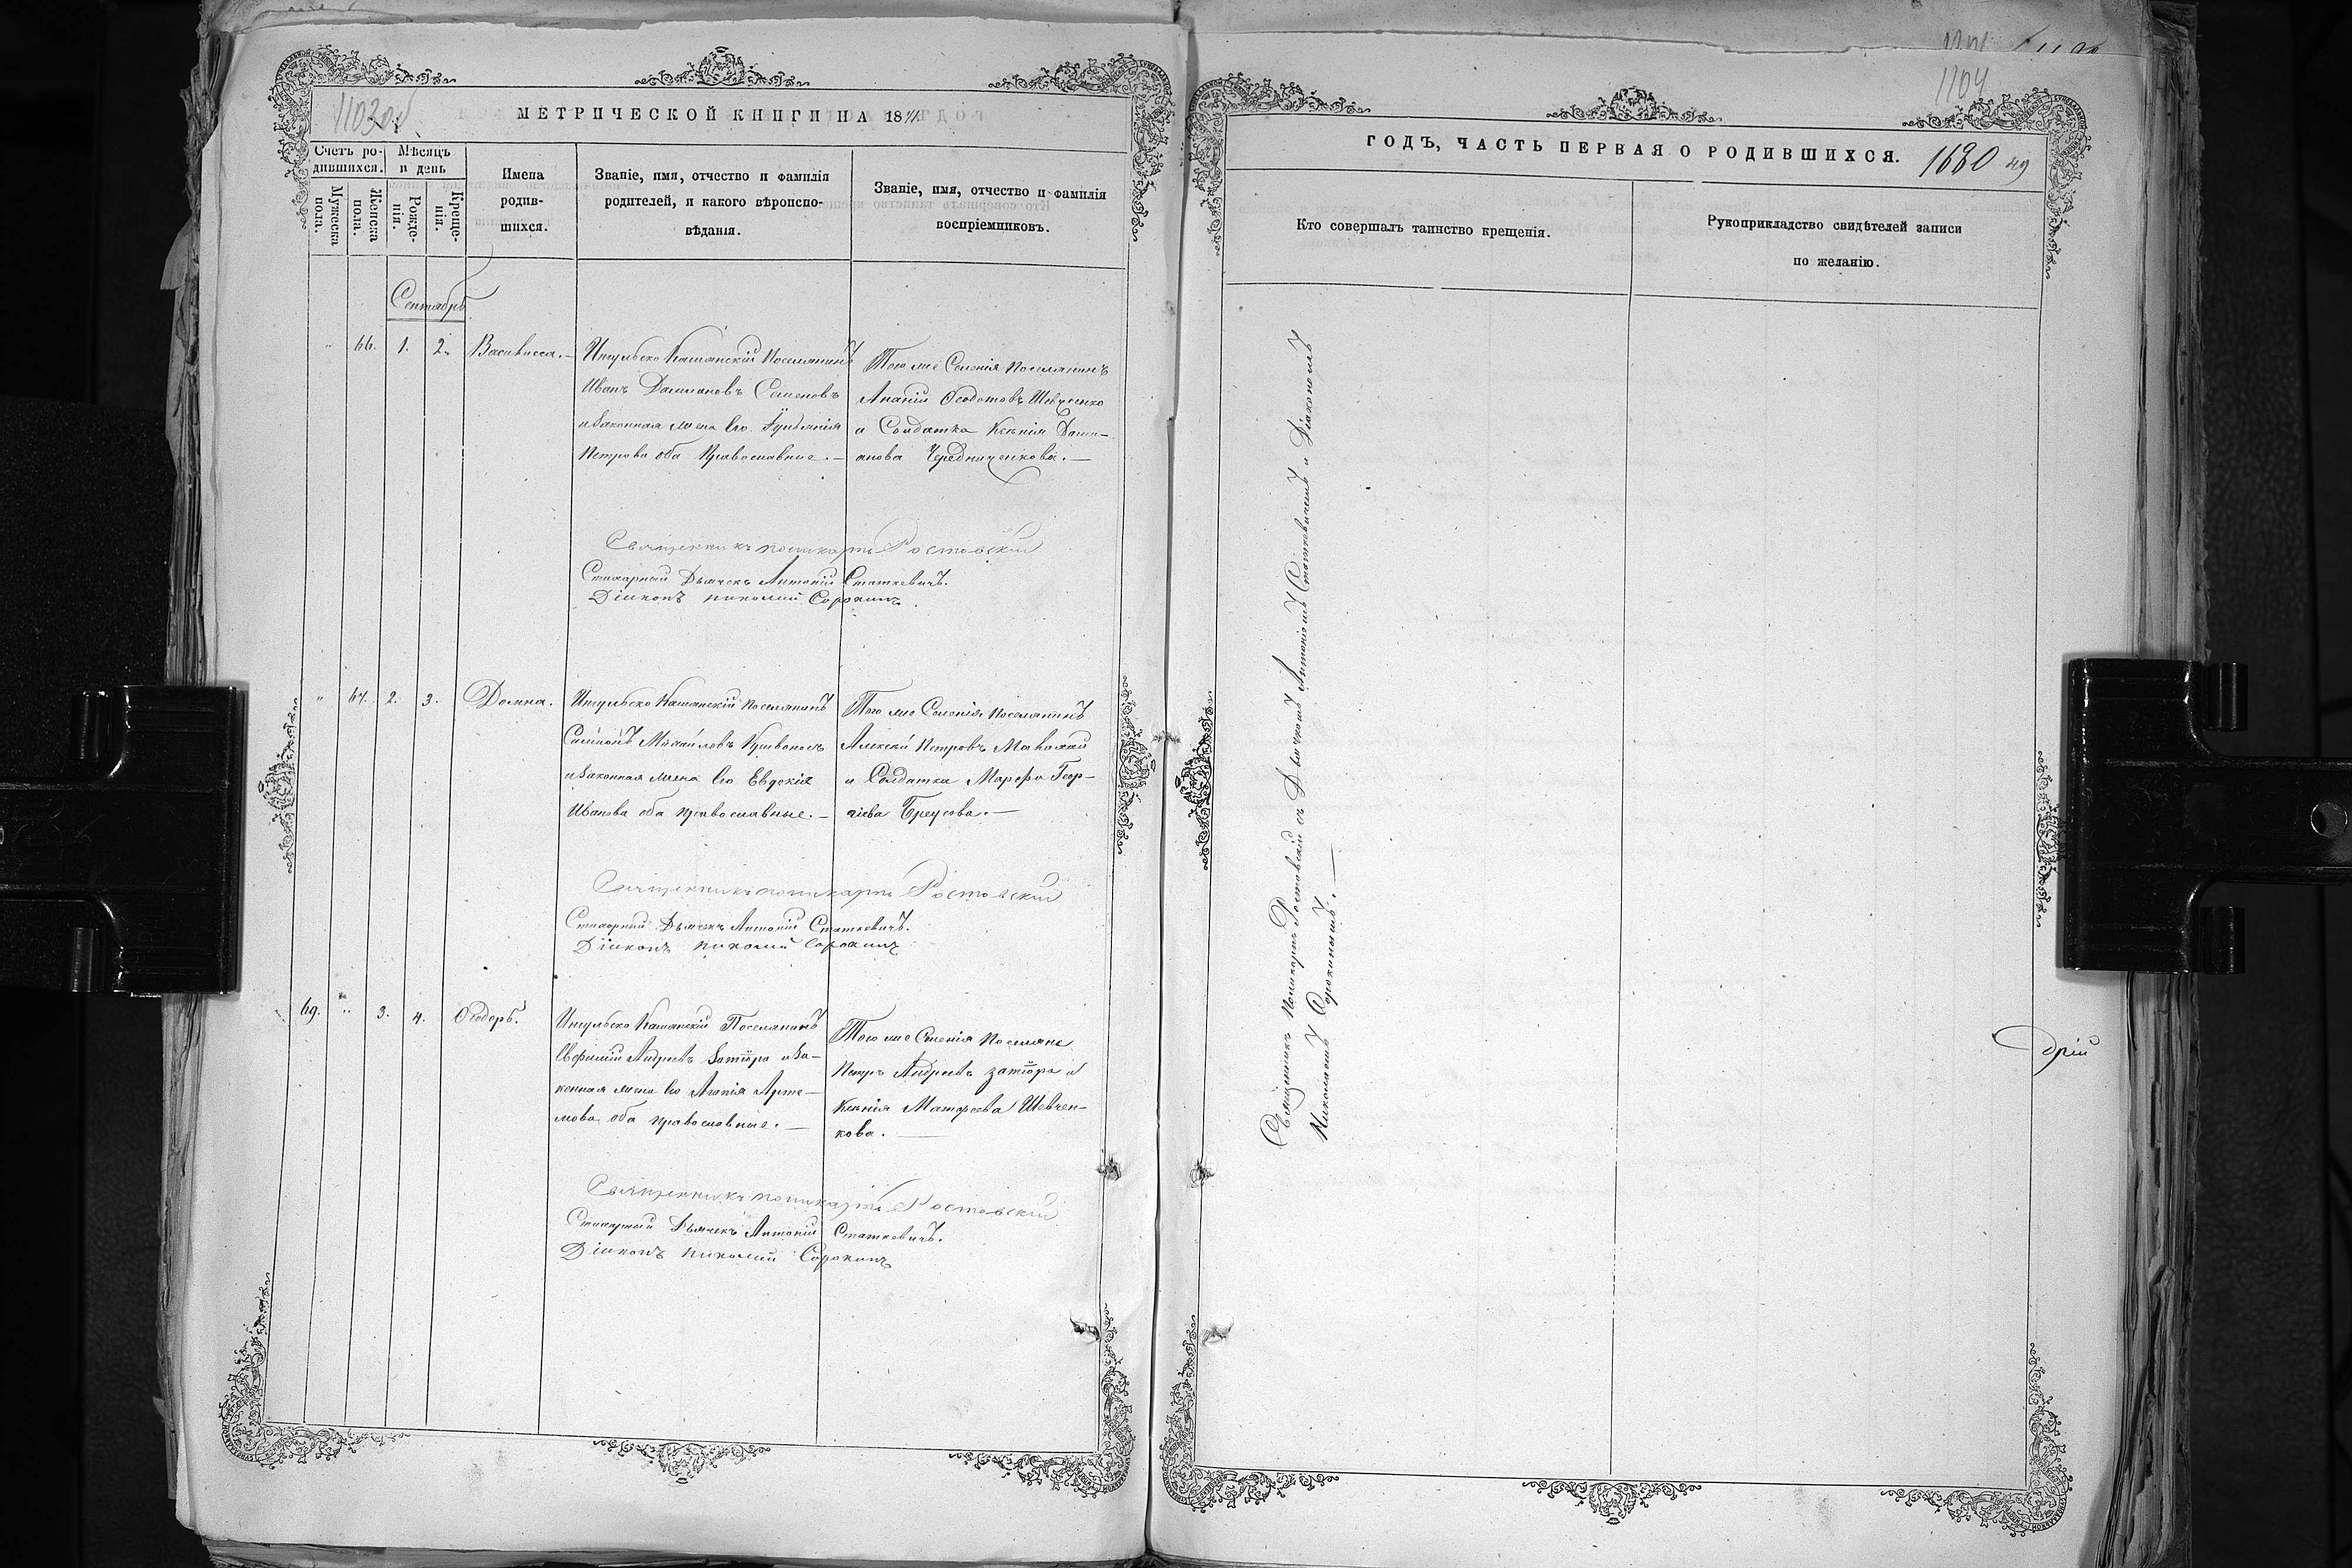 1103об
МЕТРИЧЕСКОЙ КНИГИ НА 1871
Счетъ ро-
дившихся.
Мѣсяцъ
и день
Мужеска
пола.
Женска
пола.
Рожде-
нія.
Креще-
нія.
Имена
родив-
шихся.
Званіе, имя, отчество и фамилія
родителей, и какого вѣроиспо-
вѣданія.
Званіе, имя, отчество и фамилія
воспріемниковъ.
Сентябрь
" 66. 1. 2. Василисса.
Поселянинъ
Иванъ Даміановъ Семеновъ
и законная жена его
Петрова оба Православные.
Того же Селенія Поселянинъ
Ананій Ѳеодотовъ Шевченко
и Солдатка Ксенія Дамі-
анова Чередниченкова.
Священникъ Поликарпъ Ростовскій
Стихарный Дьячекъ Антоній Статкевичъ.
Діаконъ Николай Сорокинъ.
" 67. 2. 3. Домна.
Поселянинъ
Михаиловъ Кривоносъ
и законная жена его Евдокія
Иванова оба православные.
Того же Селенія поселянинъ
Алексѣй Петровъ
и Солдатка Марфа Геор-
гіева
Священникъ Поликарпъ Ростовскій
Стихарный Дьячекъ Антоній Статкевичъ.
Діаконъ Николай Сорокинъ
69. " 3. 4. Ѳеодоръ.
Поселянинъ
Евфимій Андреевъ и за-
конная жена его Агапія Арте-
мова оба православные.
Того же Селенія Поселяне
Петръ Андреевъ и
Ксенія Матфеева Шевчен-
кова.
Священникъ Поликарпъ Ростовскій
Стихарный Дьячекъ Антоній Статкевичъ.
Діаконъ Николай Сорокинъ
1104
ГОДЪ, ЧАСТЬ ПЕРВАЯ О РОДИВШИХСЯ.
1680
Кто совершалъ таинство крещенія.
Рукоприкладство свидѣтелей записи
по желанію.
Священникъ Поликарпъ Ростовскій съ Дьячкомъ Антоніемъ Статкевичемъ и Діакономъ
Николаемъ Сорокинымъ.
дрій